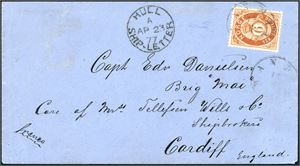 HULL
A
AP 23
77
SHIP-LETTER
Capt Edv Danielsen
Brig "Mai"
Care of Mrs Tellefsen Wills & Co
Shipbrokers
Cardiff
England
Franco
6